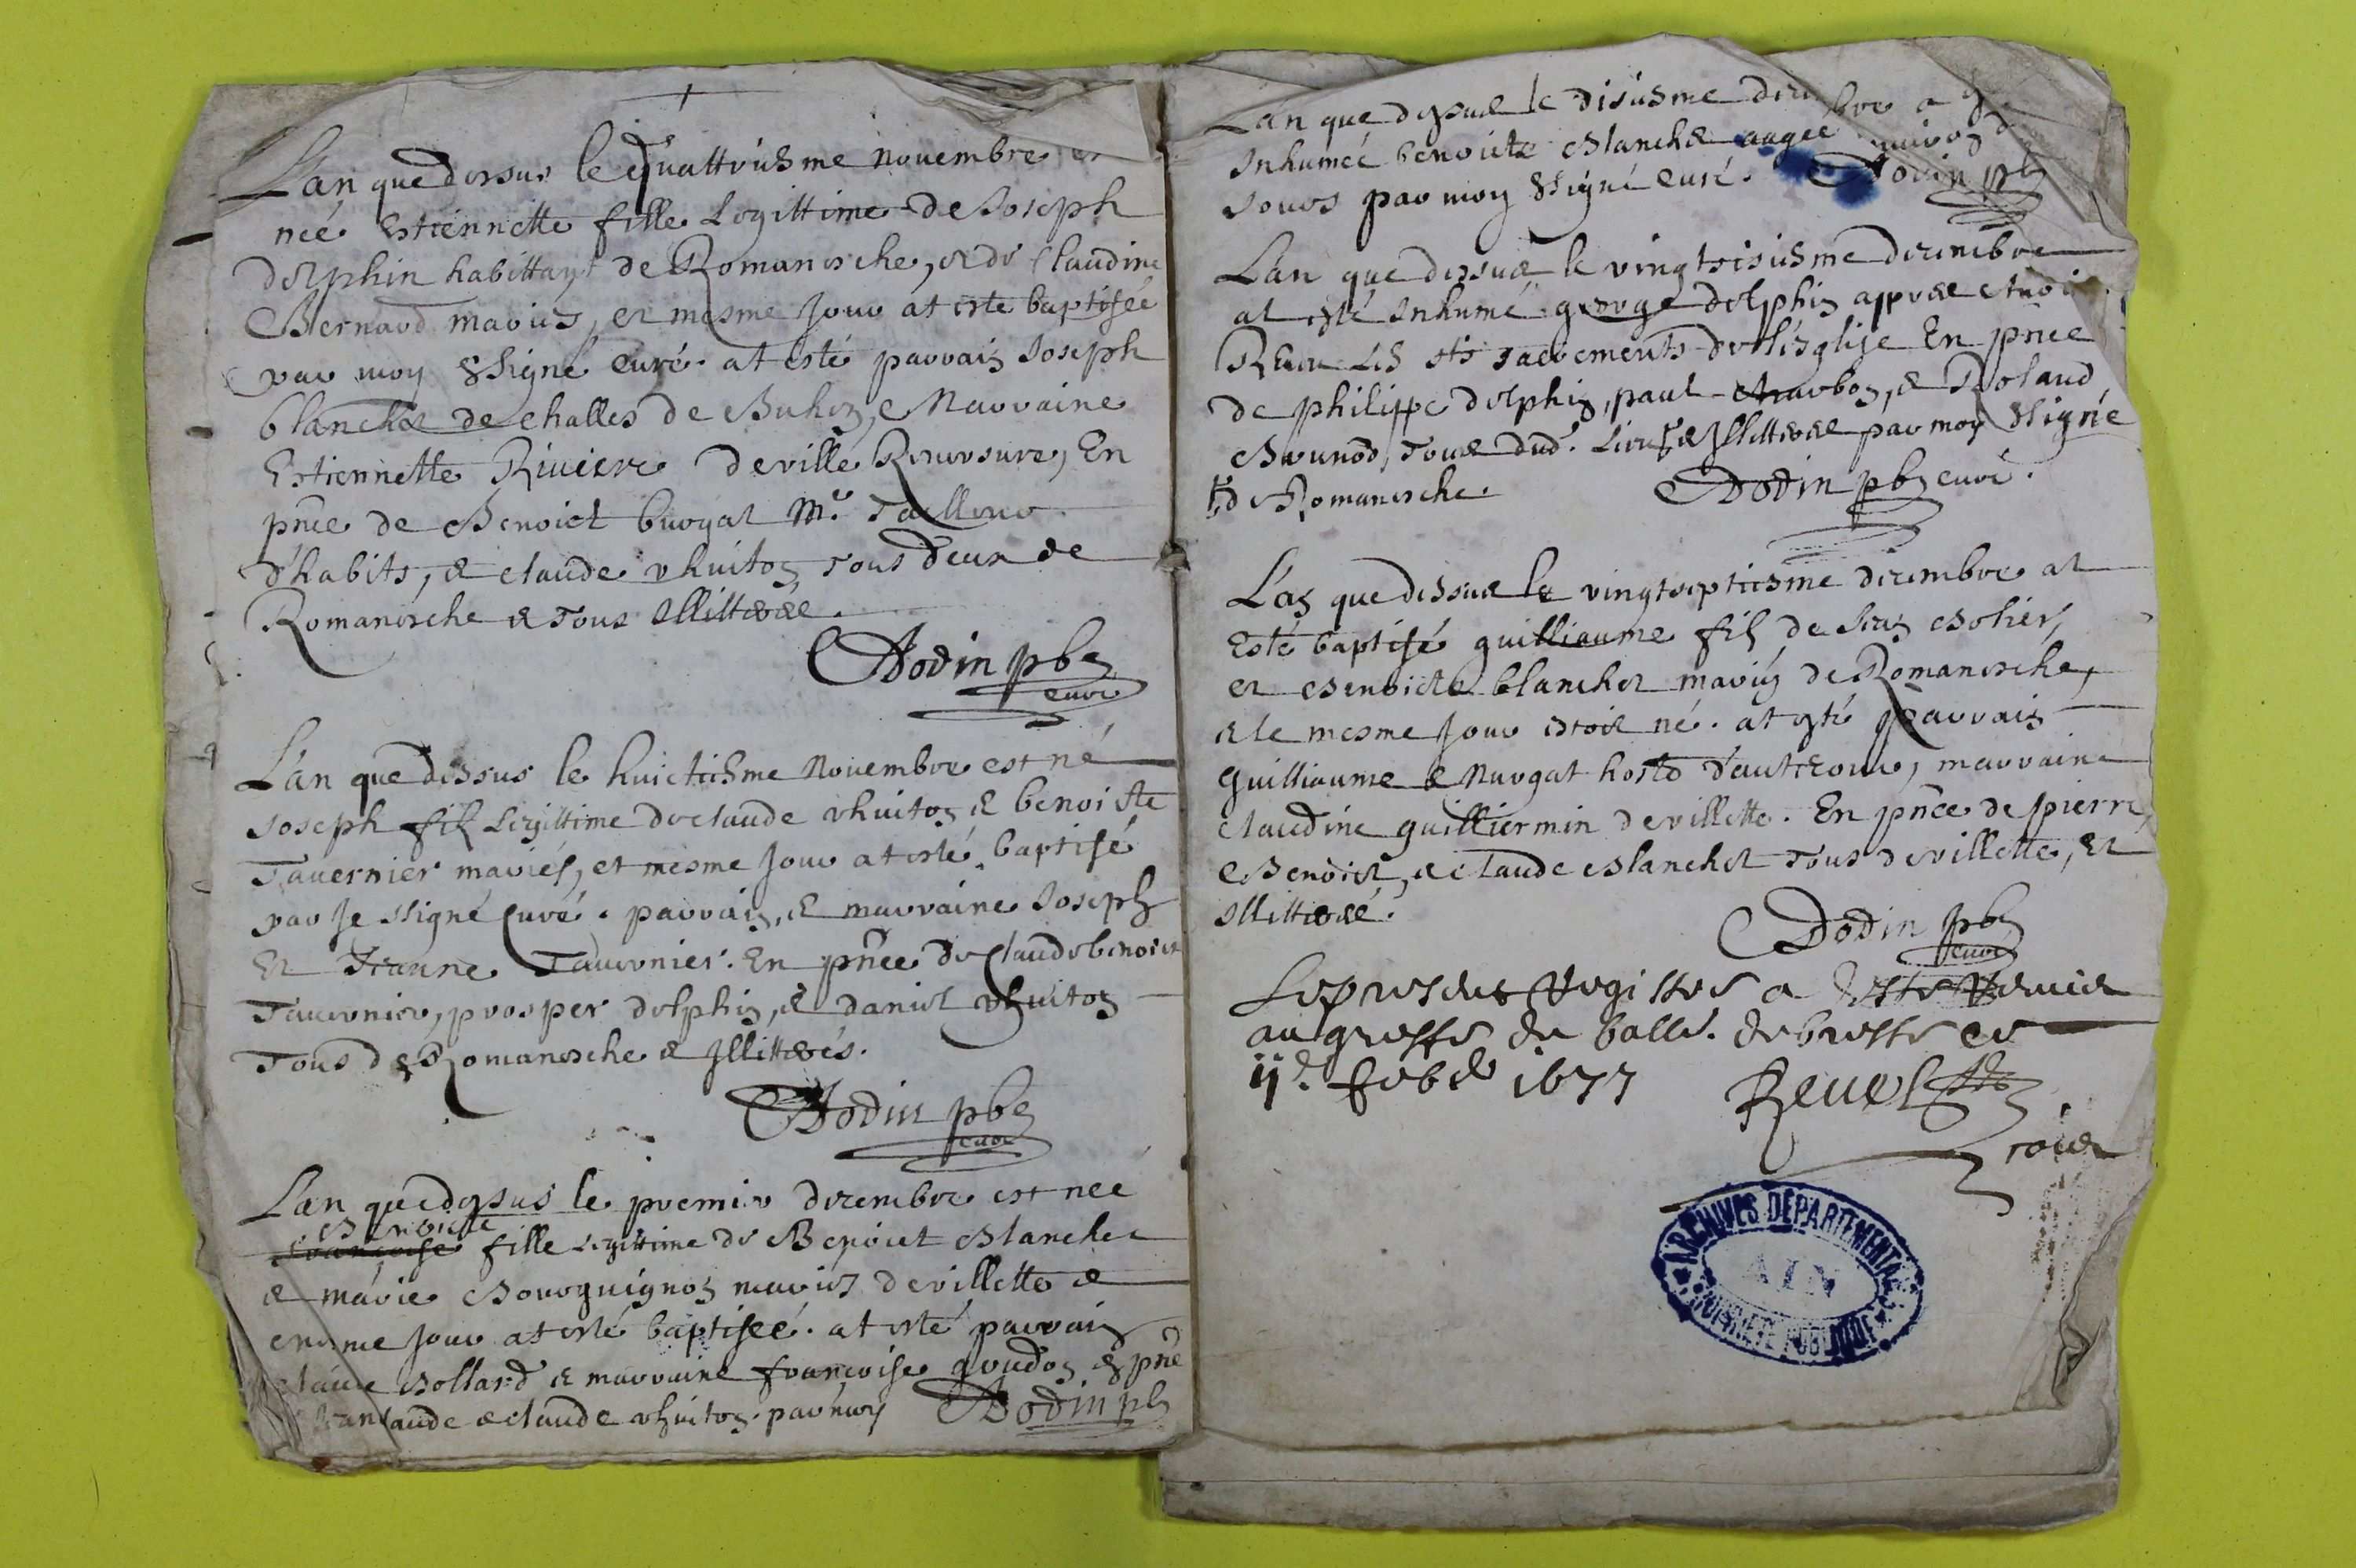 L'an que dessus le quattriesme novembre est
née Estiennette fille Legittime de Joseph
dolphin habittant de Romanesche, et de Claudine
Bernard mariés, et mesme jour at este baptisée
par moy ssigné curé. at esté parrain Joseph
blanchet de challes de Buhen, e Marraine
Estiennette Riviere de ville Reversure, En
pñce de Benoict burgat Mᵉ Tailleur
d'habits, & claude vhuiton tous deux de
Romanesche & tous illitterés.
Dodin pbr
curé
L'an que dessus le huictiesme Novembre est né
Joseph fils Legittime de claude vhuiton & benoiste
Tavernier mariés, et mesme jour at esté baptisé
par je ssigné Curé. parrain, & marraine Joseph
Et Jeanne Tavernier. En pñce de Claude benoict
Tavernier, prosper dolphin, & daniel vhuiton
Tous de Romanesche & Jllitterés.
Dodin pbr
curé
L'an que dessus le premier decembre est née
Benoicte
francoise fille legittime de Benoict Blanchet
& marie Bourguignon mariés de villette &
mesme jour at esté baptiseé. at esté parrain
claude Bollard & marraine francoise goudon en pñce
claude & claude vhuiton. par moy Dodin pbr
L'an que dessus le disiesme decembre a
Inhumeé benoicte Blanchet aageé
jours par moy ssigné curé. Dodin pbr
L'an que dessus le vingtsisiesme decembre
at esté Inhumé george dolphin appres avoir
Receu Les sts sacrements de l'esglise En pñce
de philippe dolphin, paul charbon, & Roland
Brunod, tous dud. Lieu & Jllitterés par moy ssigné
de Romanesche. Dodin pbr curé.
L'an que dessus le vingtseptiesme decembre at
Esté baptisé guilliaume fils de Jean Bohier,
et Benoicte blanchet mariés de Romanesche,
& le mesme jour estoit né. at esté parrain
guilliaume Murgat hoste d'autecour, marraine
claudine guilliermin de villette. En pñce de pierre,
Benoict, & claude Blanchet tous de villette, Et
illitterés.
Dodin pbr
curé
Le present Registre a esté remis
au greffe du balle. de bresse ce
ij.e febr 1677 Revel
ARCHIVES DEPARTEMENTALES
AIN